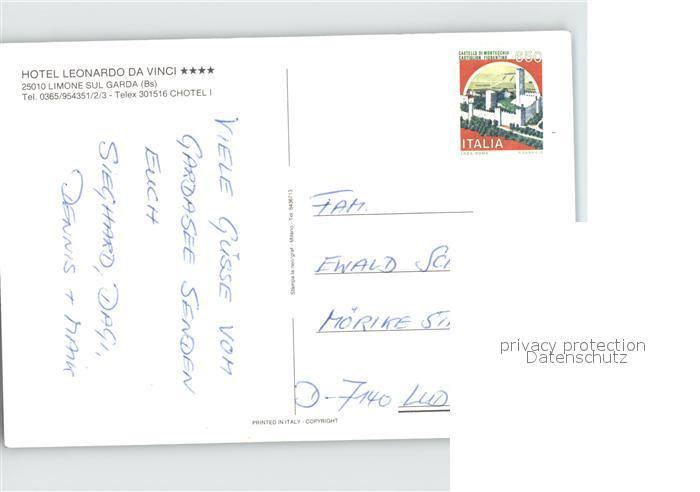 HOTEL LEONARDO DA VINCI ★★★★
25010 LIMONE SUL GARDA (Bs)
Tel. 0365/954351/2/3 - Telex 301516 CHOTEL I
VIELE GÜSSE VOM
GARDASEE SENDEN
EUCH
SIEGHARD, DAGI,
DENNIS + MAIK
Milano - Tel. 8436713
PRINTED IN ITALY - COPYRIGHT
CASTELLO DI MONTECCHIO
CASTIGLION FIORENTINO
650
ITALIA
FAM.
EWALD SC
MÖRIKE ST
D-7140 LUD
privacy protection
Datenschutz